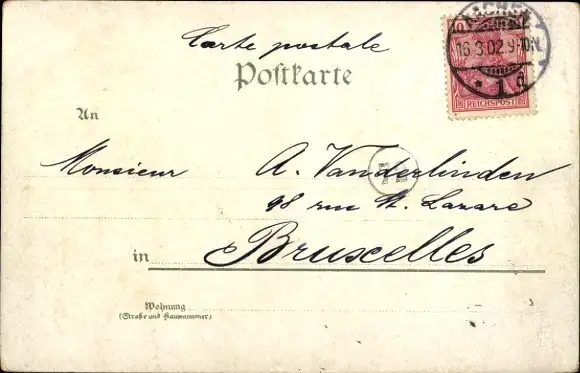 Carte postale
Postkarte
AACHEN
16.3.02.9-10N.
* 1 d
REICHSPOST
An
Monsieur A. Vanderlinden
98 rue St. Lazare
in Bruxelles
Wohnung
(Straße und Hausnummer)